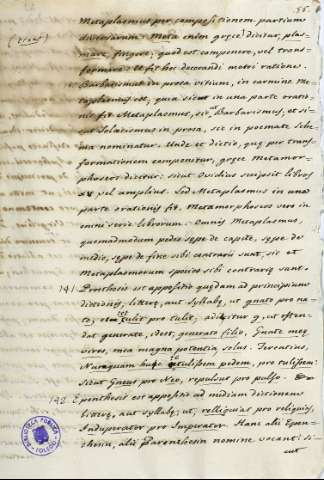 86.
Metaplasmus per compositionem partium
(vicos) diversarum. Meta enim grȩce dicitur, plas-
mare, fingere; quod est componere, vel trans-
formare: Et fit hoc decorandi metri ratione.
Barbarismus in prosa vitium, in carmine Me-
taplasmus est, quia sicut in una parte oratio-
nis fit Metaplasmus, sic et Barbarismus, et si-
cut Solœcismus in prosa, sic in poemate Sche-
ma nominatur. Unde et dictio, quȩ per trans-
formationem componitur, grȩce Metamor-
phoseos dicitur: sicut Ovidius scripsit libros
XV, vel amplius. Sed Metaplasmus in una
parte orationis fit. Metamorphoseos vero in
omni serie librorum. Omnis Metaplasmus,
quemadmodum pedes sȩpe de capite, sȩpe de
medio, sȩpe de fine sibi contrarii sunt, sic et
Metaplasmorum species sibi contrariȩ sunt.
141 Prosthesis est appositio quȩdam ad principium
dictionis, litterȩ, aut syllabȩ, ut gnato pro na-
to; tetulit pro tulit, adicitur g, ut osten-
dat generate, idest, generato filio, Gnate meȩ
vires, mea magna potentia solus. Terentius,
Nunquam huc tetulissem pedem, pro tulissem:
sicut Gneus pro Neo, repulsus pro pulso.
142 Epenthesis est appositio ad mediam dictionem
litterȩ, aut syllabȩ; ut, relliquias pro reliquias,
Induperator pro Imperator. Hanc alii Epen-
thesin, alii Parenthesin nomine vocant: si-
cut
BIBLIOTECA PUBLICA
TOLEDO